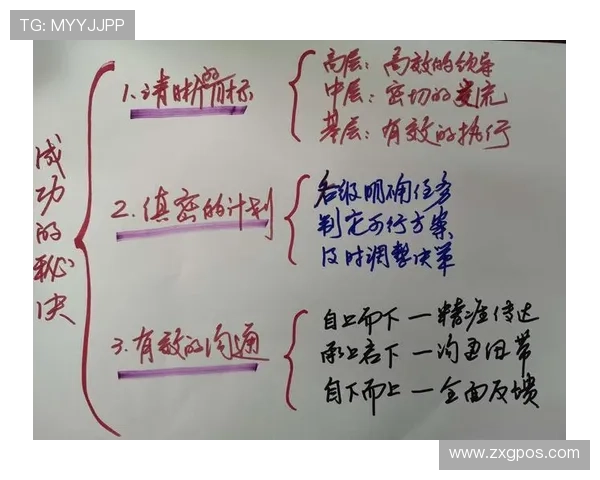 TG: MYYJJPP
成功的秘决
1.清晰的目标
高层：高效的领导
中层：密切的交流
基层：有效的执行
2.慎密的计划
各级明确任务
判定可行方案
及时调整决策
3.有效的沟通
自上而下—精准传达
承上启下—沟通纽带
自下而上—全面反馈
www.zxgpos.com